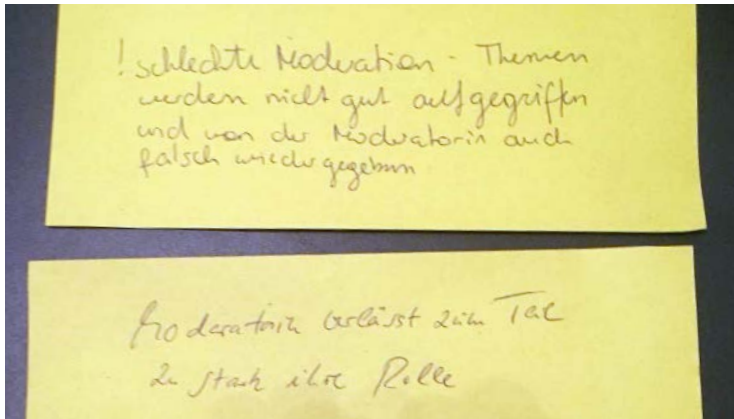 ! schlechte Moderation - Themen
werden nicht gut aufgegriffen
und von der Moderatorin auch
falsch wiedergegeben
Moderatorin verlässt zum Teil
zu stark ihre Rolle